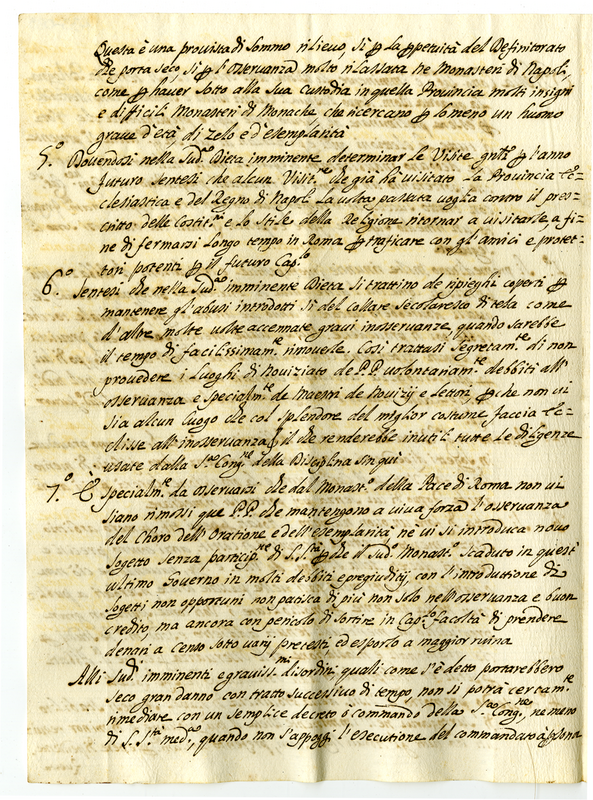 Questa è una provista di sommo rilievo, sì ꝑ la ꝑpetuità del Definitorato
che porta seco, sì ꝑ l'osservanza molto rilassata ne Monasteri di Napoli,
come ꝑ haver sotto alla sua custodia in quella Provincia molti insigni
e difficili Monasteri di Monache, che ricercano ꝑ lo meno un huomo
grave d'età, di zelo e d'esemplarità
5.º Dovendosi nella Sud.ª Dieta imminente determinar le Visite ꝑ l'anno
futuro sentesi che alcun Visit.re che già hà visitato la Provincia Ec=
clesiastica e del Regno di Nap.li la volta passata voglia contro il pres=
critto delle Costit.ni e lo stile della Religione ritornar a visitarle, a fi=
ne di fermarsi longo tempo in Roma ꝑ trafficare con gl'amici e protet=
tori potenti ꝑ il futuro Cap.º
6.º Sentesi che nella Sud.ª imminente Dieta si trattino de ripieghi coperti ꝑ
mantenere gl'abusi introdotti sì del collare secolaresco di tela come
d'altre molte volte accennate gravi inosservanze, quando sarebbe
il tempo di facilissimam.te rimoverle. Così trattasi segretam.te di non
provedere i luoghi di Noviziato de P.P. volontariam.te debbiti all'
osservanza e specialm.te de Maestri de Novizij e Lettori, ꝑche non vi
sia alcun luogo che col splendore del miglior costume faccia Ec=
clisse all'inosservanza, il che renderebbe inutili tutte le diligenze
usate dalla S.ª Cong.ne della Disciplina sin quì
7.º È specialm.te da osservarsi che dal Monast.º della Pace di Roma non vi
siano rimossi que P.P. che mantengono a viva forza l'osservanza
del Choro dell'Oratione e dell'esemplarità nè vi si introduca novo
sogetto senza particip.ne di S. S.tà ꝑche il Sud.º Monast.º scaduto in quest'
ultimo Governo in molti debbiti e pregiudicij, con l'introduttione di
sogetti non opportuni non patisca di più non solo nell'osservanza e buon
credito, ma ancora con pericolo di sortire in Cap.º facoltà di prendere
denari a Censo sotto varij pretesti, ed esporlo a maggior ruina
Alli Sud.i imminenti e gravissi.mi disordini, quali come s'è detto portarebbero
seco gran danno con tratto successivo di tempo, non si potrà certam.te
rimediare con un semplice decreto ò commando della S.ª Cong.ne, ne meno
di S. S.tà med.ª, quando non s'appoggi l'esecutione del commandato a ꝑsona